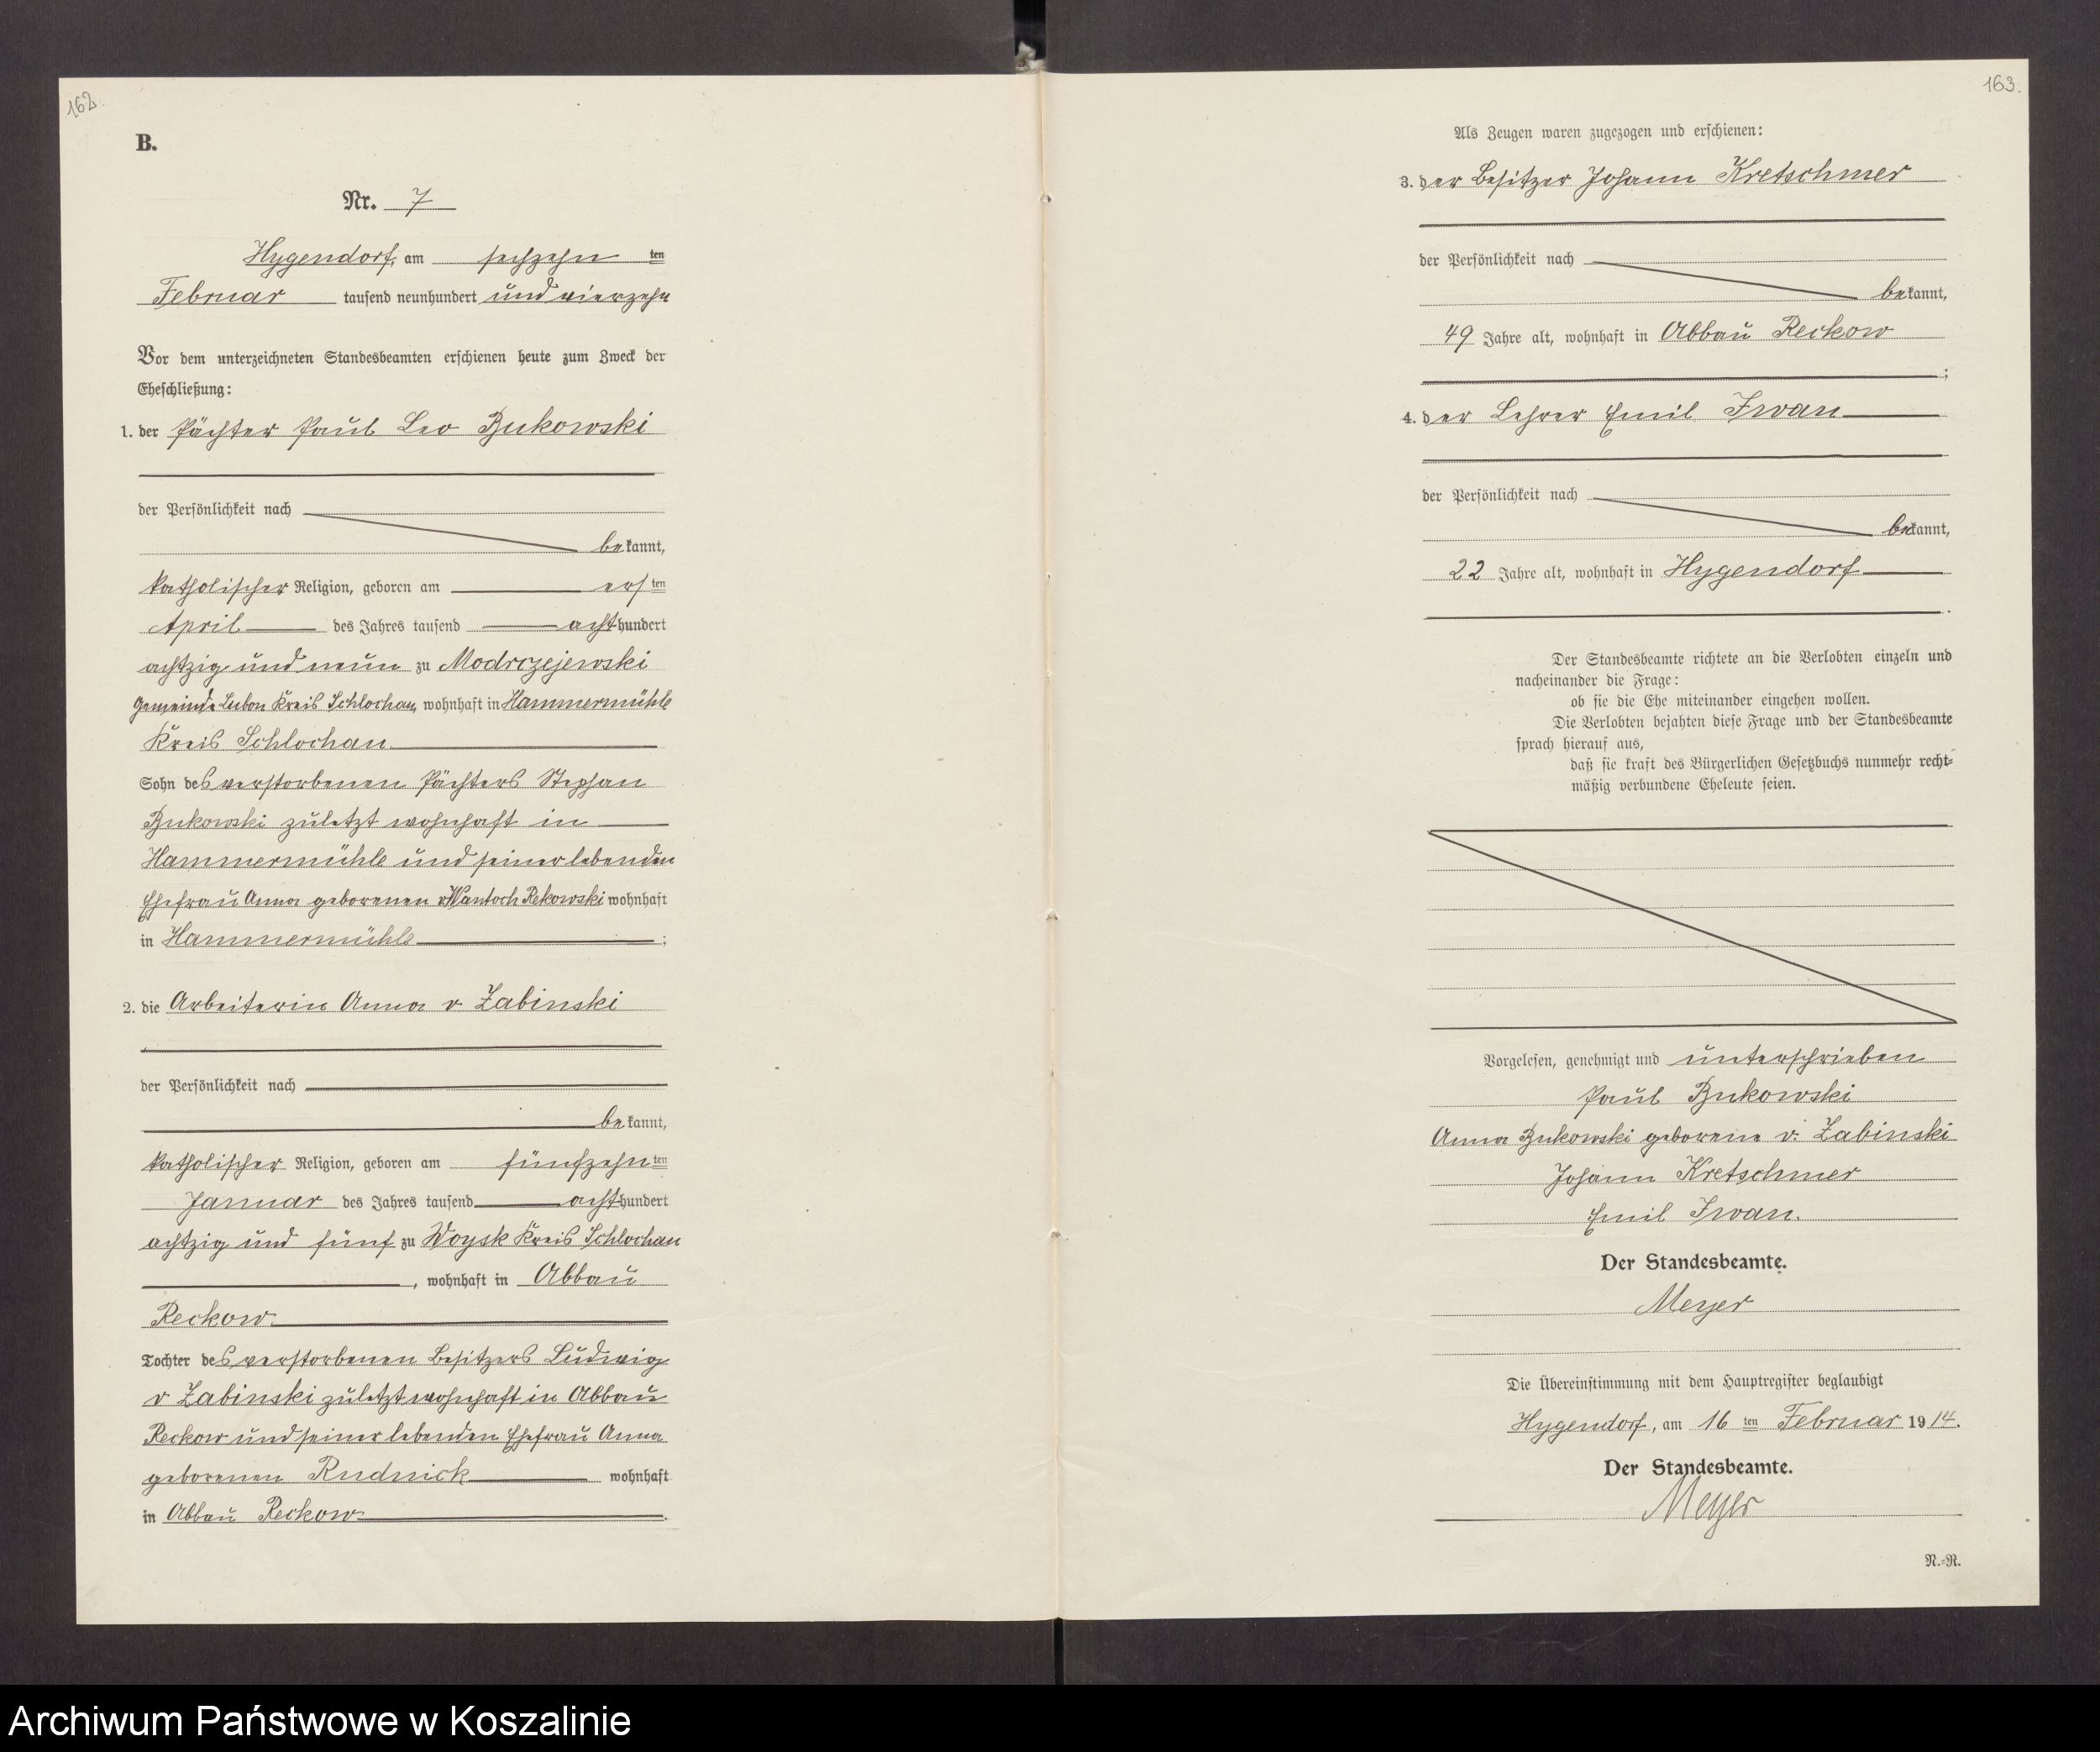 162.
B.
Nr. 7
Hygendorf, am sechzehn ten
Februar tausend neunhundert und vierzehn
Vor dem unterzeichneten Standesbeamten erschienen heute zum Zweck der
Eheschließung:
1. der Pächter Paul Leo Bukowski
der Persönlichkeit nach
bekannt,
katholischer Religion, geboren am ersten
April des Jahres tausend achthundert
achtzig und neun zu Modrczejewski
Gemeinde Lubon Kreis Schlochau, wohnhaft in Hammermühle
Kreis Schlochau
Sohn des verstorbenen Pächters Stephan
Bukowski zuletzt wohnhaft in
Hammermühle und seiner lebenden
Ehefrau Anna geborenen v Wantoch Rekowski wohnhaft
in Hammermühle ;
2. die Arbeiterin Anna v Zabinski
der Persönlichkeit nach
bekannt,
katholischer Religion, geboren am fünfzehnten
Januar des Jahres tausend achthundert
achtzig und fünf zu Woysk Kreis Schlochau
, wohnhaft in Abbau
Reckow.
Tochter des verstorbenen Besitzers Ludwig
v Zabinski zuletzt wohnhaft in Abbau
Reckow und seiner lebenden Ehefrau Anna
geborenen Rudnick wohnhaft
in Abbau Reckow .
163.
Als Zeugen waren zugezogen und erschienen:
3. der Besitzer Johann Kretschmer
der Persönlichkeit nach
bekannt,
49 Jahre alt, wohnhaft in Abbau Reckow
;
4. der Lehrer Emil Iwan
der Persönlichkeit nach
bekannt,
22 Jahre alt, wohnhaft in Hygendorf
.
Der Standesbeamte richtete an die Verlobten einzeln und
nacheinander die Frage:
ob sie die Ehe miteinander eingehen wollen.
Die Verlobten bejahten diese Frage und der Standesbeamte
sprach hierauf aus,
daß sie kraft des Bürgerlichen Gesetzbuchs nunmehr recht-
mäßig verbundene Eheleute seien.
Vorgelesen, genehmigt und unterschrieben
Paul Bukowski
Anna Bukowski geborene v. Zabinski
Johann Kretschmer
Emil Iwan.
Der Standesbeamte.
Meyer
Die Übereinstimmung mit dem Hauptregister beglaubigt
Hygendorf, am 16 ten Februar 1914.
Der Standesbeamte.
Meyer
N.-R.
Archiwum Państwowe w Koszalinie